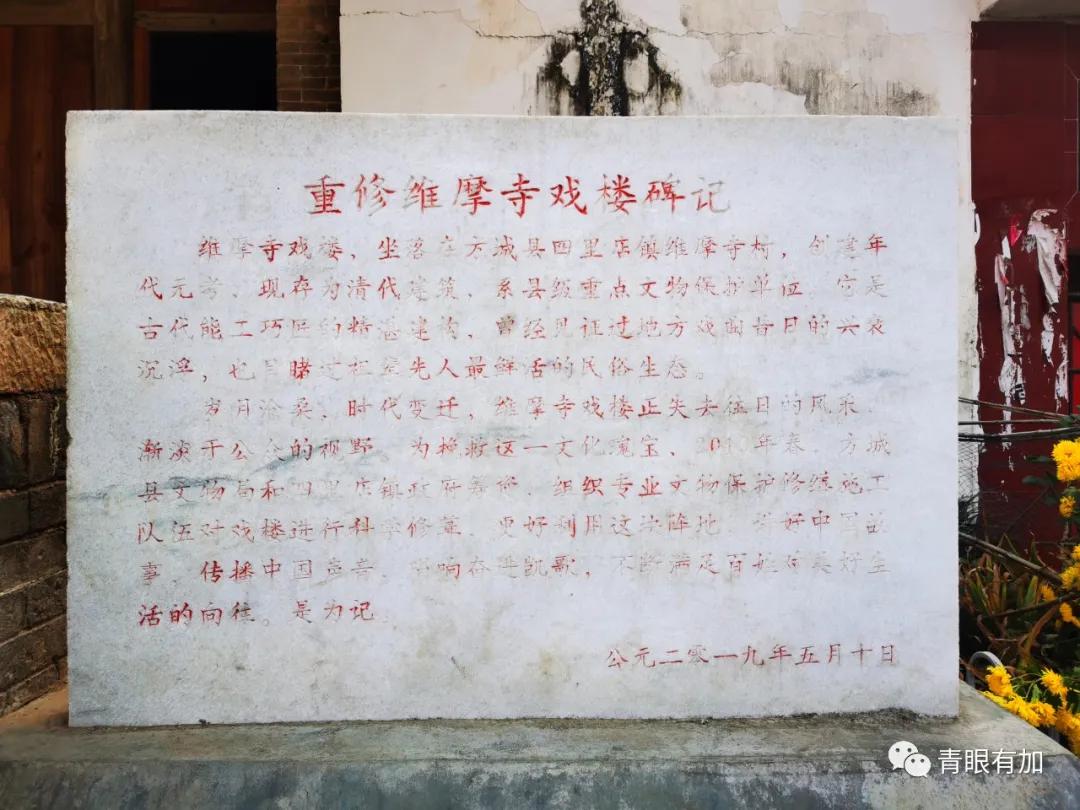 重修维摩寺戏楼碑记
维摩寺戏楼，坐落在方城县四里店镇维摩寺村，创建年
代无考、现存为清代建筑、系县级重点文物保护单位、它是
古代能工巧匠的精湛建构、曾经见证过地方戏曲昔日的兴衰
沉浮，也目睹过在先人最鲜活的民俗生态。
岁月沧桑、时代变迁，维摩寺戏楼正失去往日的风采、
渐淡于公众的视野 为挽救这一文化瑰宝、201年春、方城
县文物局和四里店镇政府筹资、组织专业文物保护修缮施工
队伍对戏楼进行科学修葺、更好利用这块阵地 讲好中国故
事、传播中国声音、响奋进凯歌，不断满足百姓对美好生
活的向往。是为记
公元二零一九年五月十日
青眼有加